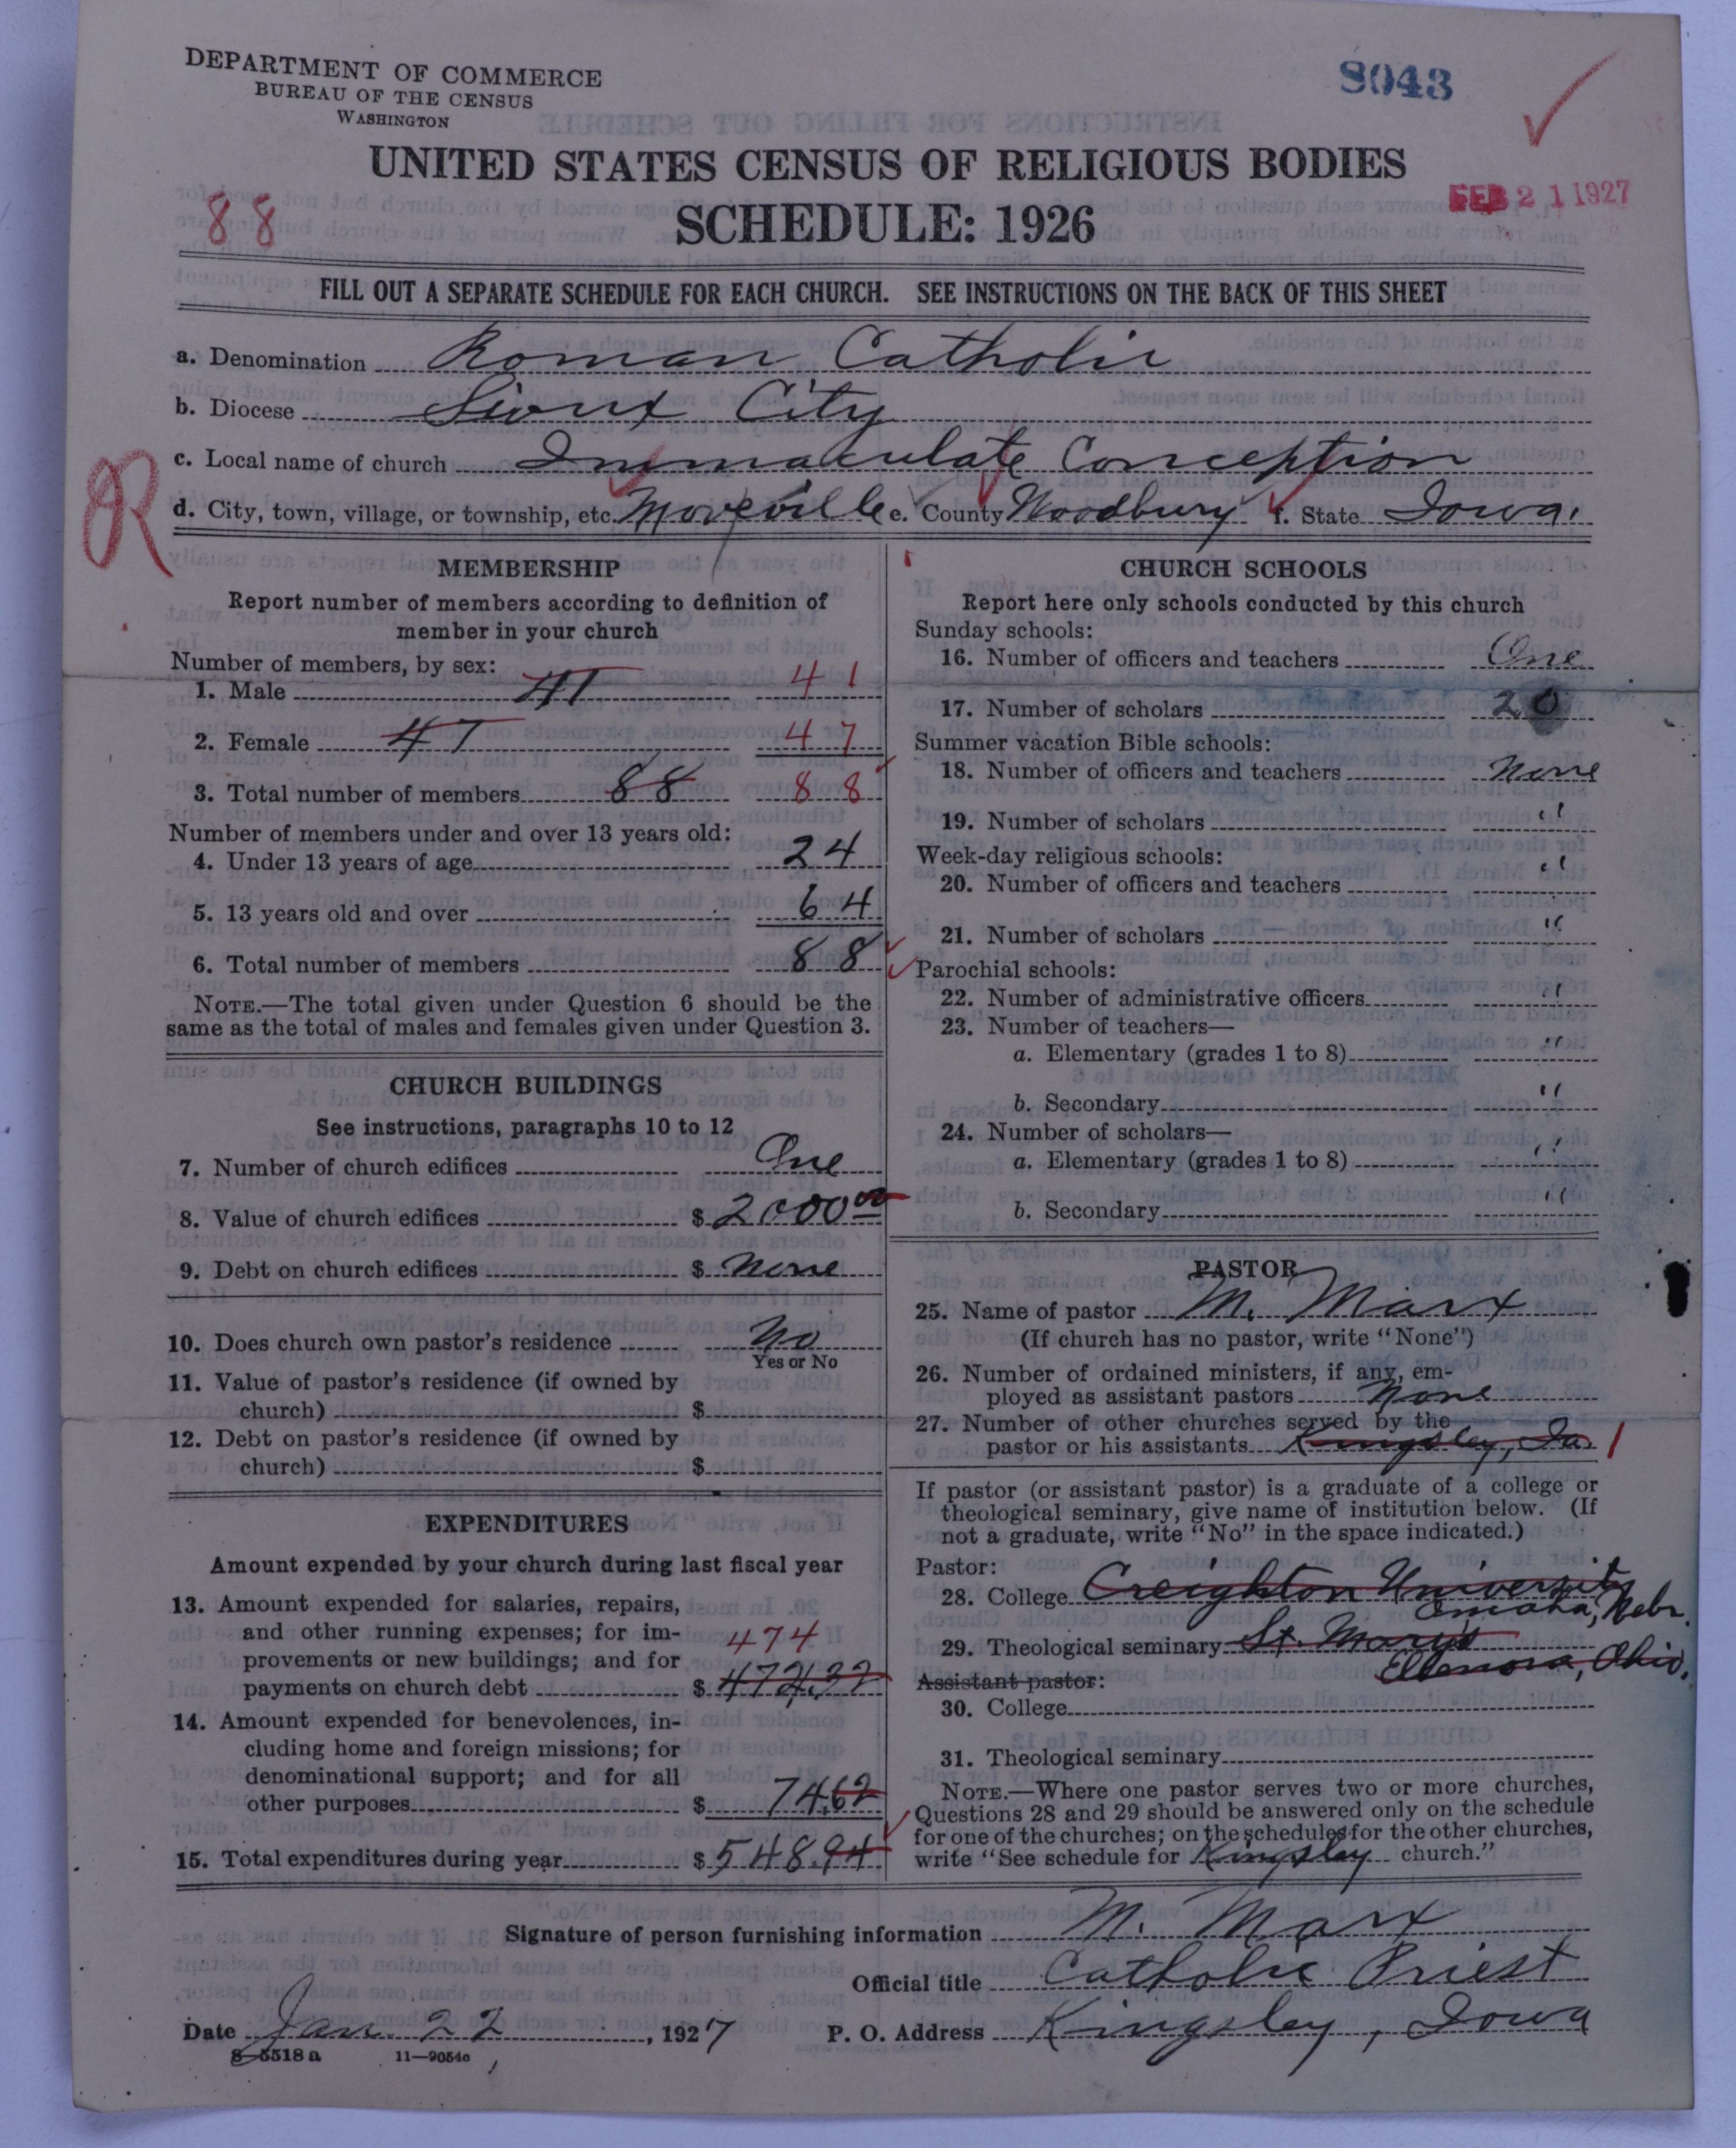 DEPARTMENT OF COMMERCE
BUREAU OF THE CENSUS
WASHINGTON
8043
UNITED STATES CENSUS OF RELIGIOUS BODIES
FEB 21 1927
88
SCHEDULE: 1926
FILL OUT A SEPARATE SCHEDULE FOR EACH CHURCH. SEE INSTRUCTIONS ON THE BACK OF THIS SHEET
a. Denomination Roman Catholic
b. Diocese Sioux City
c. Local name of church Immaculate Conception
d. City, town, village, or township, etc. Moveville e. County Woodbury f. State Iowa.
R
MEMBERSHIP
Report number of members according to definition of
member in your church
Number of members, by sex:
1. Male 41 41
2. Female 47 47
3. Total number of members 88 88
Number of members under and over 13 years old:
4. Under 13 years of age 24
5. 13 years old and over 64
6. Total number of members 88
NOTE.—The total given under Question 6 should be the
same as the total of males and females given under Question 3.
CHURCH BUILDINGS
See instructions, paragraphs 10 to 12
7. Number of church edifices One
8. Value of church edifices $ 2000 00
9. Debt on church edifices $ None
10. Does church own pastor's residence No
Yes or No
11. Value of pastor's residence (if owned by
church) $
12. Debt on pastor's residence (if owned by
church) $
EXPENDITURES
Amount expended by your church during last fiscal year
13. Amount expended for salaries, repairs,
and other running expenses; for im- 474
provements or new buildings; and for
payments on church debt $ 474.32
14. Amount expended for benevolences, in-
cluding home and foreign missions; for
denominational support; and for all
other purposes $ 74.62
15. Total expenditures during year $ 548.94
CHURCH SCHOOLS
Report here only schools conducted by this church
Sunday schools:
16. Number of officers and teachers One
17. Number of scholars 20
Summer vacation Bible schools:
18. Number of officers and teachers None
19. Number of scholars "
Week-day religious schools:
20. Number of officers and teachers "
21. Number of scholars "
Parochial schools:
22. Number of administrative officers "
23. Number of teachers—
a. Elementary (grades 1 to 8) "
b. Secondary "
24. Number of scholars—
a. Elementary (grades 1 to 8) "
b. Secondary "
PASTOR
25. Name of pastor M. Marx
(If church has no pastor, write "None")
26. Number of ordained ministers, if any, em-
ployed as assistant pastors None
27. Number of other churches served by the
pastor or his assistants Kingsley, Ia. 1
If pastor (or assistant pastor) is a graduate of a college or
theological seminary, give name of institution below. (If
not a graduate, write "No" in the space indicated.)
Pastor:
28. College Creighton University
Omaha, Nebr.
29. Theological seminary St. Mary's
Ohio.
Assistant pastor:
30. College
31. Theological seminary
NOTE.—Where one pastor serves two or more churches,
Questions 28 and 29 should be answered only on the schedule
for one of the churches; on the schedules for the other churches,
write "See schedule for Kingsley church."
Signature of person furnishing information M. Marx
Official title Catholic Priest
Date Jan. 22, 1927 P. O. Address Kingsley, Iowa
8-5518 a 11—9054c